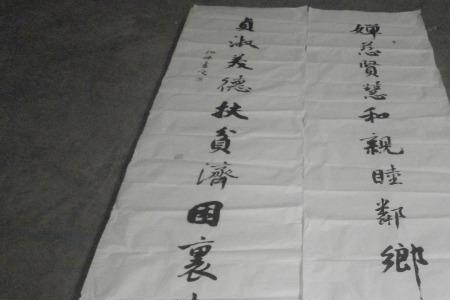 婵慈賢慧和親睦鄰鄉
貞淑美德扶貧濟困裏